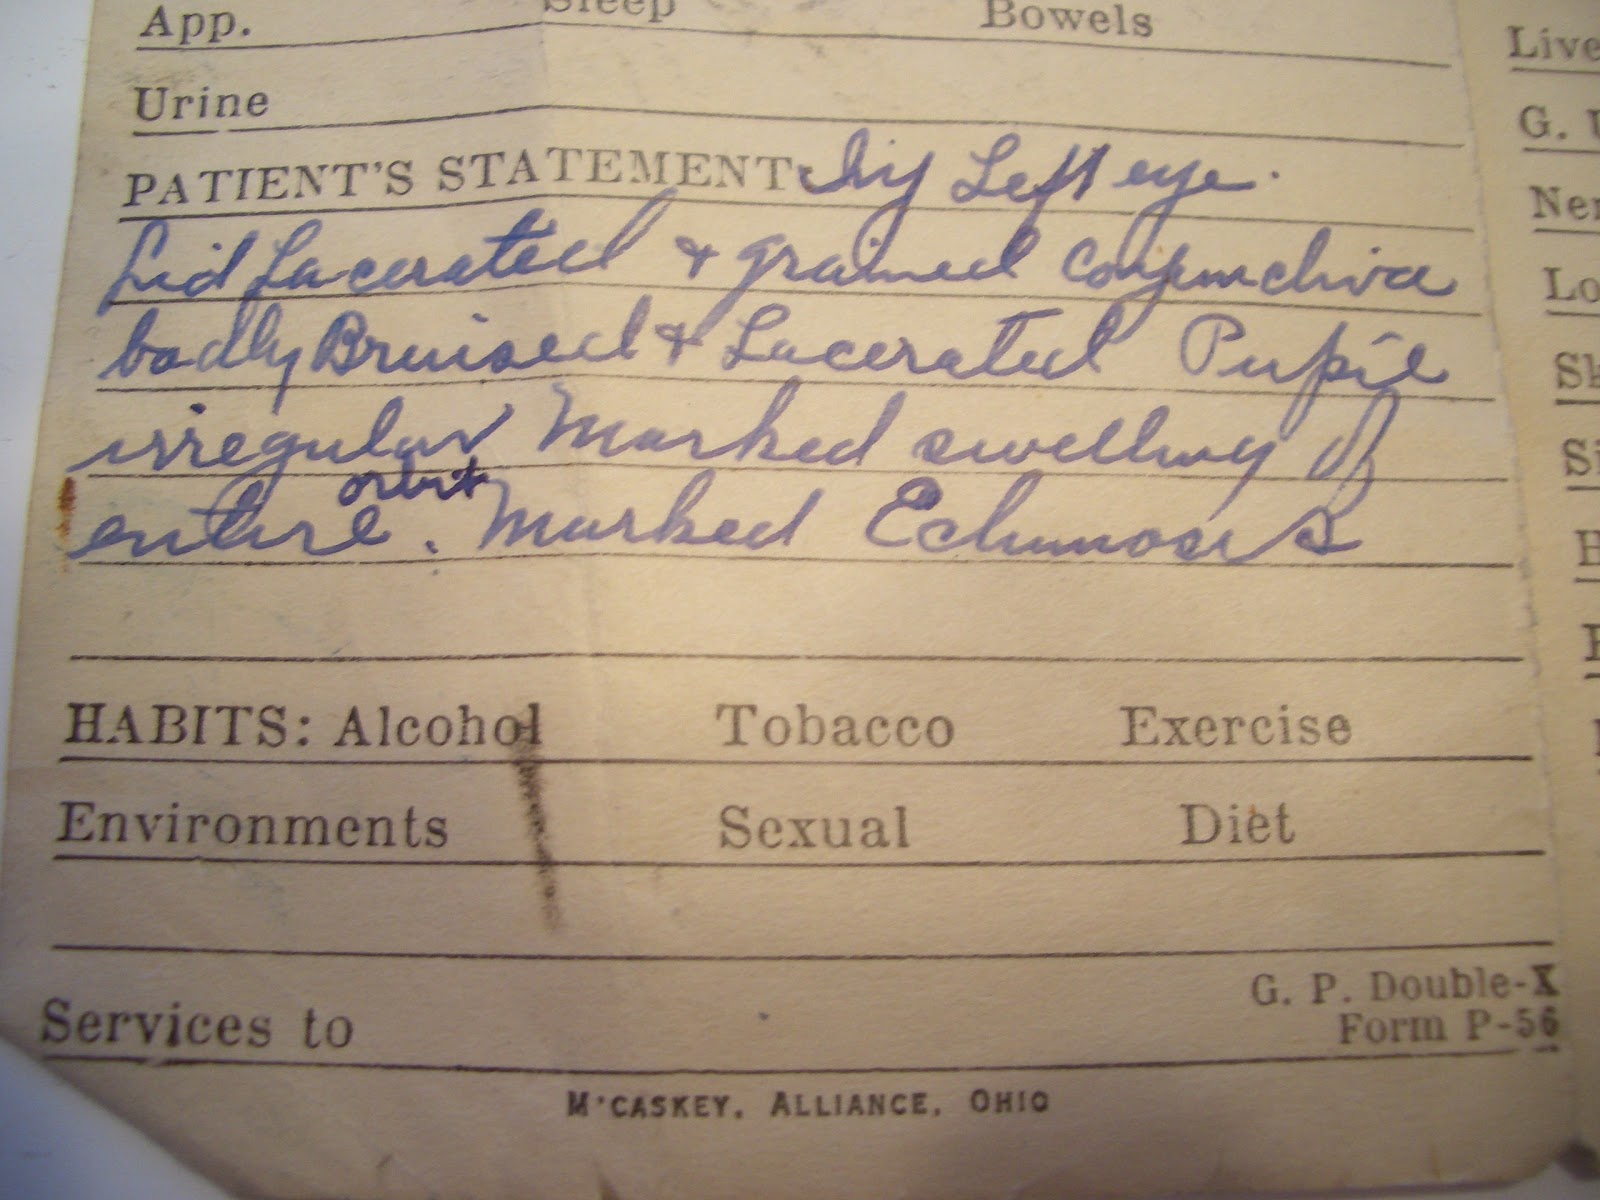 App. Sleep Bowels
Urine
PATIENT'S STATEMENT Inj Left eye.
Lid Lacerated + grained Conjunctiva
badly Bruised + Lacerated Pupil
irregular Marked swelling of
entire orbit. Marked Echimosis
HABITS: Alcohol Tobacco Exercise
Environments Sexual Diet
Services to
G. P. Double-X
Form P-56
M'CASKEY, ALLIANCE, OHIO
Live
G. U
Ner
Lo
Sk
Si
H